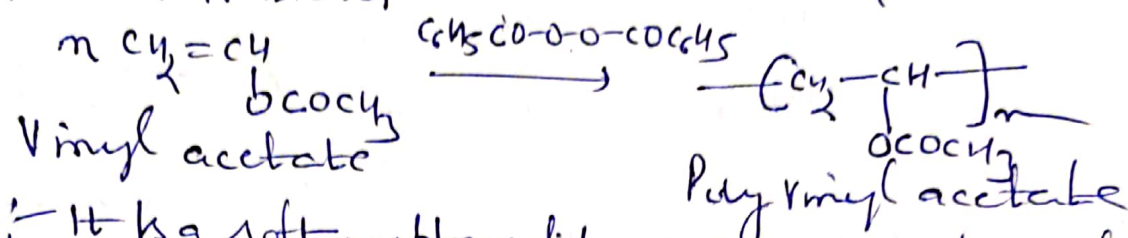 n CH2=CH C6H5CO-O-O-COC6H5 —[CH2—CH—]n
OCOCH3 OCOCH3
Vinyl acetate Poly vinyl acetate
:- It is a soft